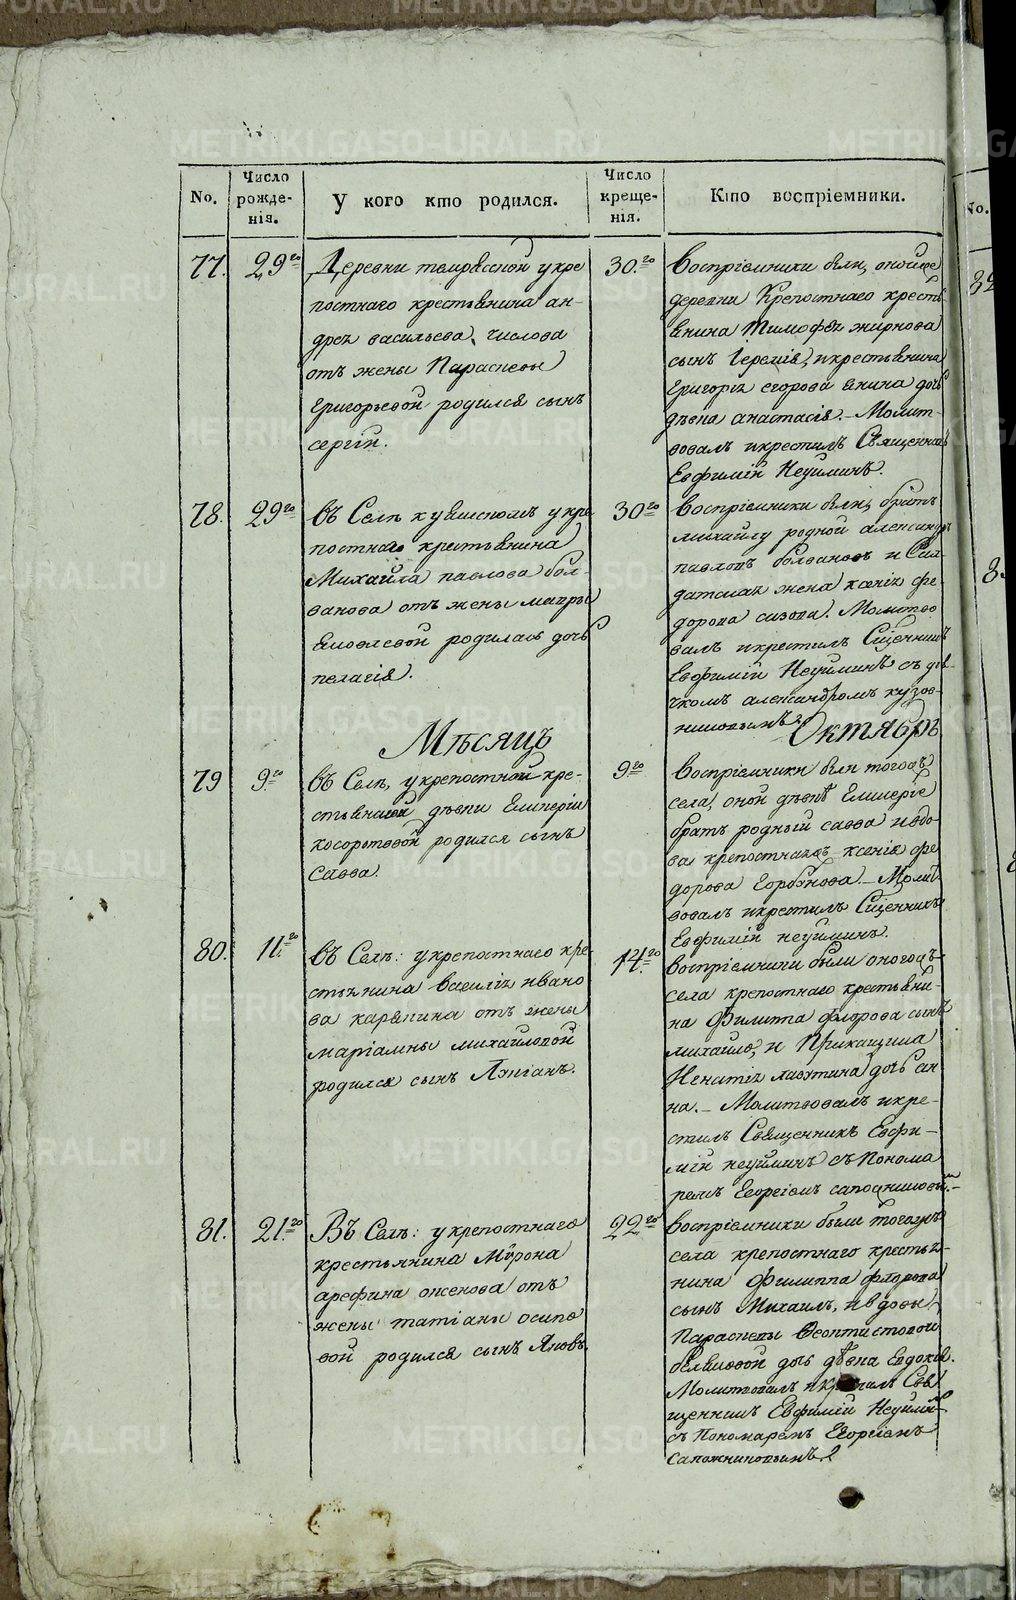 No.
Число рожденія.
У кого кто родился.
Число крещенія.
Кто воспріемники.
77.
29го
Деревни темряской укре
постнаго крестьянина ан-
дрея васильева числова
отъ жены Параскевы
григорьевой родился сынъ
сергій.
30.го
Воспріемники были, оной же
деревни Крепостнаго кресть
янина Тимофея жирнова
сынъ Іеремія, икрестьянина
григорія егорова янина дочь
дѣвка анастасія. Молит-
вовалъ икрестилъ Священникъ
Евфимій Неуйминъ.
78.
29го
въ Селѣ кувинскомъ укре
постнаго крестьянина
Михайла павлова бол-
ванова отъ жены мавры
яковлевой родилась дочь
пелагія.
30го
Воспріемники были, братъ
михайлу родной александръ
павловъ болвановъ и Сол
датская жена ксенія фе-
дорова сизова. Молитво
валъ икрестилъ Сщенникъ
Евфимій Неуйминъ съ дья-
чкомъ александромъ кузов-
никовымъ
Мѣсяцъ
Октябрь
79
9го
въ Селѣ, укрепостной кре-
стьянской дѣвки Гликеріи
косоротовой родился сынъ
Савва.
9го
Воспріемники были тогожъ
села, оной дѣвкѣ Гликеріе
братъ родный савва ивдо-
ва крепостная ксенія фе
дорова Горбунова. Молит
вовалъ икрестилъ Сщенникъ
Евфимій неуйминъ.
80.
11.го
въ Селѣ: укрепостнаго кре
стьянина василія ивано
ва карякина отъ жены
маріамны михайловой
родился сынъ Лукіанъ.
14.го
Воспріемники были оногожъ
села крепостнаго крестьяни-
на Филиппа флорова сынъ
михайло, и Прикащика
Игнатія лаоутина дочь ан
на. Молитвовалъ икре-
стилъ Священникъ Евфи-
мій неуйминъ съ Понома
ремъ Георгіемъ сапожниковымъ.
81.
21.го
Въ Селѣ: укрепостнаго
крестьянина Мѵрона
арефина ожехова отъ
жены татіаны осипо
вой родился сынъ Яковъ.
22го
Воспріемники были тогожъ
села крепостнаго крестья-
нина Филиппа флорова
сынъ Михаилъ, ивдовы
Параскевы Феоктистовой
дочь дѣвка Евдокія.
Молитвовалъ икрестилъ Свя
щенникъ Евфимій Неуйминъ
съ Пономаремъ Георгіемъ
Сапожниковымъ